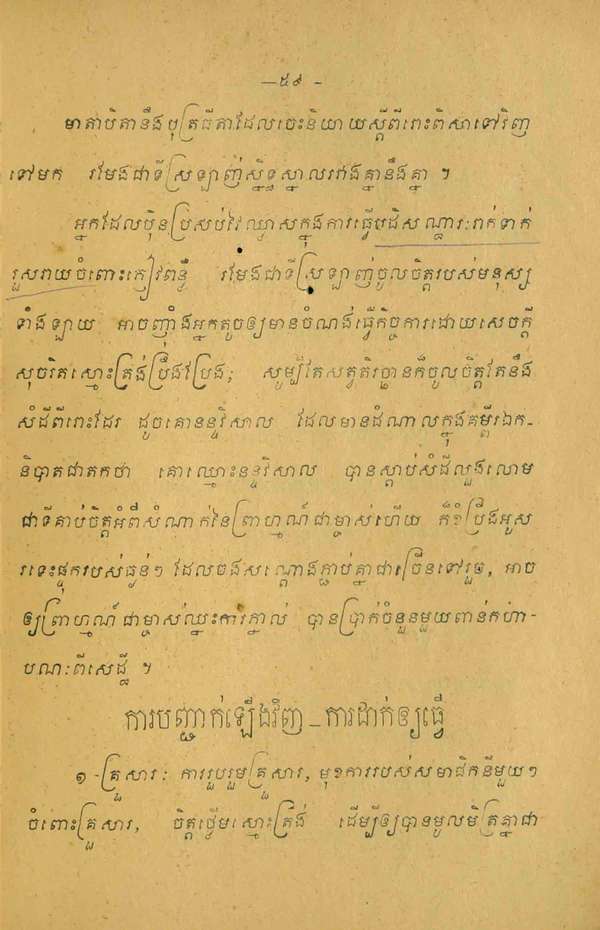 —៥៩ -
មាតាបិតានឹងបុត្រធីតាដែលចេះនិយាយស្ដីពីរោះពិសាទៅវិញ
ទៅមក រមែងជាទីស្រឡាញ់ស្និទ្ធស្នាលរវាងគ្នានឹងគ្នា ។
អ្នកដែលប៉ិនប្រសប់វៃឈ្លាសក្នុងការធ្វើបដិសណ្ឋារៈរាក់ទាក់
រួសរាយចំពោះភៀវពន្ធឺ រមែងជាទីស្រឡាញ់ចូលចិត្តរបស់មនុស្ស
ទាំងឡាយ អាចញ៉ាំងអ្នកតូចឲ្យមានចំណង់ធ្វើកិច្ចការដោយសេចក្ដី
សុចរិតស្មោះត្រង់ប្រឹងប្រែង; សូម្បីតែសត្វតិរច្ឆានក៏ចូលចិត្តតែនឹង
សំដីពីរោះដែរ ដូចគោនន្ទវិសាល ដែលមានដំណាលក្នុងគម្ពីរឯក-
និបាតជាតកថា គោឈ្មោះនន្ទវិសាល បានស្ដាប់សំដីលួងលោម
ជាទីគាប់ចិត្តអំពីសំណាក់នៃព្រាហ្មណ៍ជាម្ចាស់ហើយ ក៏ខំប្រឹងអូស
រទេះផ្ទុករបស់ធ្ងន់ៗ ដែលចងសណ្ដោងភ្ជាប់គ្នាជាច្រើនទៅរួច, អាច
ឲ្យព្រាហ្មណ៍ជាម្ចាស់ឈ្នះការភ្នាល់ បានប្រាក់ចំនួនមួយពាន់កហា-
បណៈពីសេដ្ឋី ។
ការបញ្ជាក់ឡើងវិញ _ ការដាក់ឲ្យធ្វើ
១ -គ្រួសារ: ការរួបរួមគ្រួសារ, មុខការរបស់សមាជិកនីមួយៗ
ចំពោះគ្រួសារ, ចិត្តថ្លើមស្មោះត្រង់ ដើម្បីឲ្យបានមូលមិត្រគ្នាជា